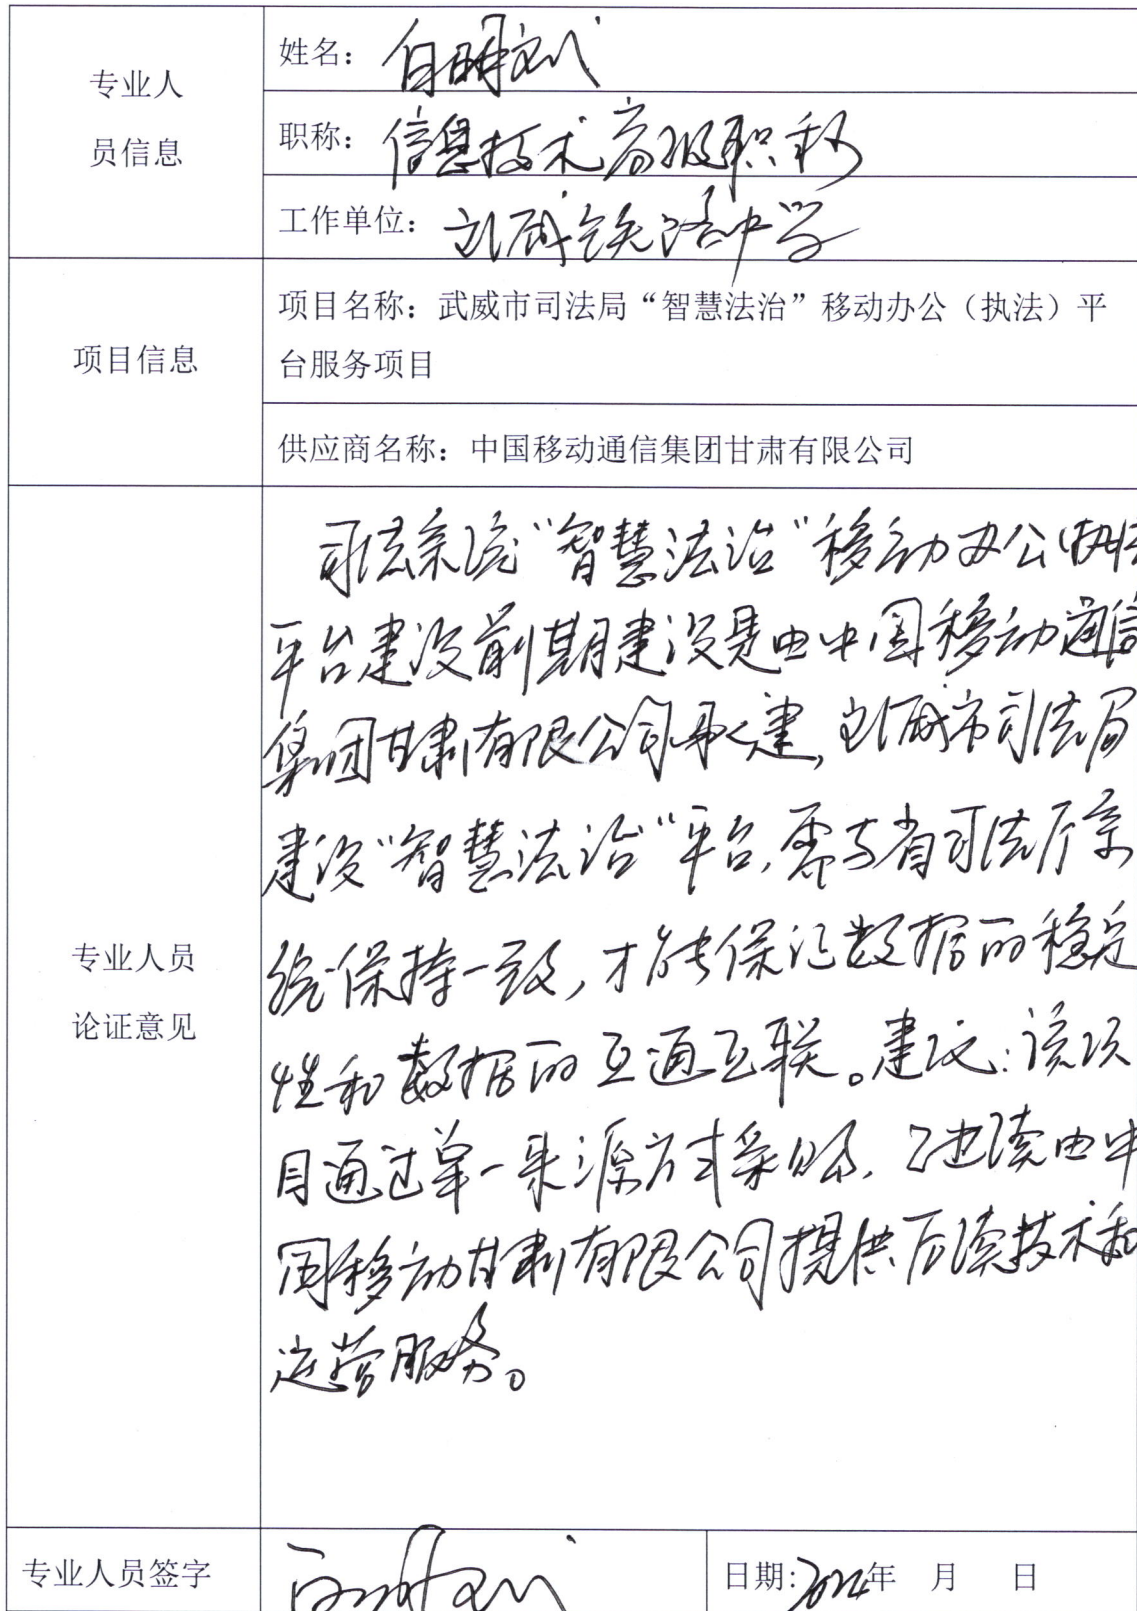 专业人
员信息
姓名：白明武
职称：信息技术高级职称
工作单位：武威铁路中学
项目信息
项目名称：武威市司法局“智慧法治”移动办公（执法）平
台服务项目
供应商名称：中国移动通信集团甘肃有限公司
专业人员
论证意见
司法系统“智慧法治”移动办公(执法
平台建设前期建设是由中国移动通信
集团甘肃有限公司承建,武威市司法局
建设“智慧法治”平台,需与省司法厅系
统保持一致,才能保证数据的稳定
性和数据的互通互联。建议:该项
目通过单一来源方式采购,继续由中
国移动甘肃有限公司提供后续技术和
运营服务。
专业人员签字
日期:2024年 月 日